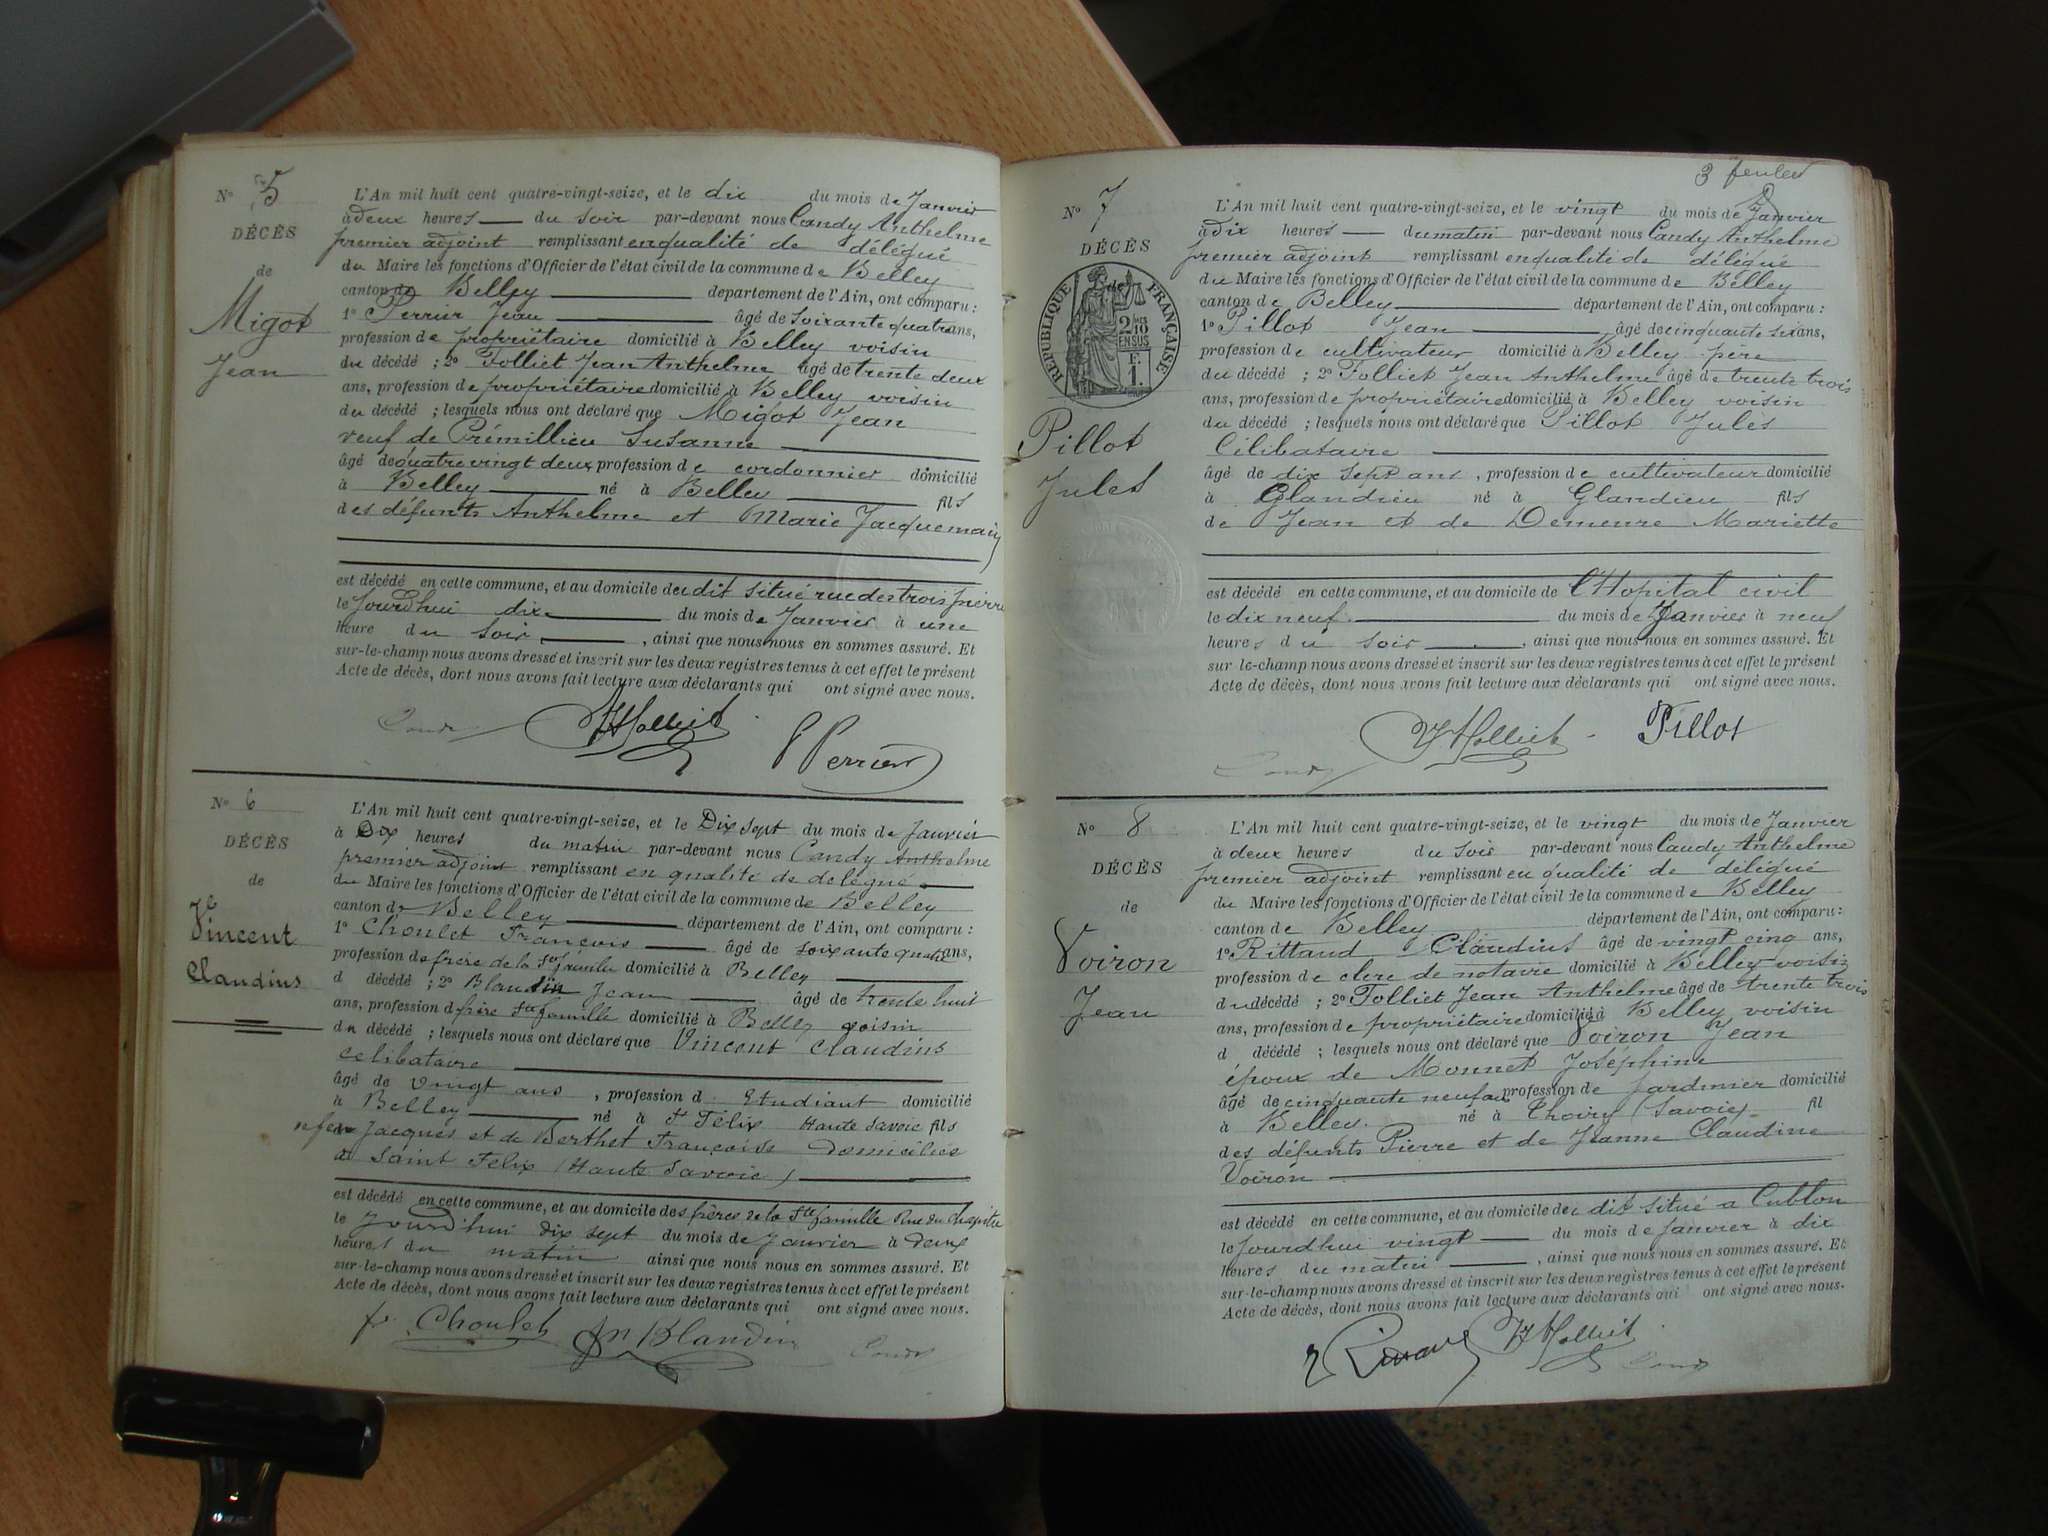 N° 5
DÉCÈS
de
Migot
Jean
L'An mil huit cent quatre-vingt-seize, et le dix du mois de Janvier
à deux heures du soir par-devant nous Candy Anthelme
premier adjoint remplissant en qualité de délégué
du Maire les fonctions d'Officier de l'état civil de la commune de Belley
canton de Belley département de l'Ain, ont comparu :
1° Perrier Jean âgé de soixante quatre ans,
profession de propriétaire domicilié à Belley voisin
du décédé ; 2° Folliet Jean Anthelme âgé de trente deux
ans, profession de propriétaire domicilié à Belley voisin
du décédé ; lesquels nous ont déclaré que Migot Jean
veuf de Prémillieu Susanne
âgé de quatre vingt deux profession de cordonnier domicilié
à Belley né à Belley fils
des défunts Anthelme et Marie Jacquemain
est décédé en cette commune, et au domicile de dit situé rue des trois pierres
le Jourdhui dix du mois de Janvier à une
heure du soir, ainsi que nous nous en sommes assuré. Et
sur-le-champ nous avons dressé et inscrit sur les deux registres tenus à cet effet le présent
Acte de décès, dont nous avons fait lecture aux déclarants qui ont signé avec nous.
Candy JAFolliet Perrier
N° 6
DÉCÈS
de
Vincent
Claudius
L'An mil huit cent quatre-vingt-seize, et le Dix sept du mois de Janvier
à Dix heures du matin par-devant nous Candy Anthelme
premier adjoint remplissant en qualité de délégué
du Maire les fonctions d'Officier de l'état civil de la commune de Belley
canton de Belley département de l'Ain, ont comparu :
1° Choulet François âgé de soixante quatre ans,
profession de frère de la Ste famille domicilié à Belley
d décédé ; 2° Blandin Jean âgé de trente huit
ans, profession de frère Ste famille domicilié à Belley voisin
du décédé ; lesquels nous ont déclaré que Vincent Claudius
célibataire
âgé de vingt ans, profession d Etudiant domicilié
à Belley né à St Félix Haute Savoie fils
de Jacques et de Berthet Françoise domiciliés
à Saint Félix (Haute Savoie)
est décédé en cette commune, et au domicile des frères de la Ste famille Rue du Chapitre
le Jourd'hui dix sept du mois de Janvier à deux
heures du matin ainsi que nous nous en sommes assuré. Et
sur-le-champ nous avons dressé et inscrit sur les deux registres tenus à cet effet le présent
Acte de décès, dont nous avons fait lecture aux déclarants qui ont signé avec nous.
f. Choulet Jn Blandin Candy
N° 7
DÉCÈS
de
RÉPUBLIQUE FRANÇAISE
2/10 EN SUS
F. 1.
Pillot
Jules
L'An mil huit cent quatre-vingt-seize, et le vingt du mois de Janvier
à dix heures du matin par-devant nous Candy Anthelme
premier adjoint remplissant en qualité de délégué
du Maire les fonctions d'Officier de l'état civil de la commune de Belley
canton de Belley département de l'Ain, ont comparu :
1° Pillot Jean âgé de cinquante six ans,
profession de cultivateur domicilié à Belley père
du décédé ; 2° Folliet Jean Anthelme âgé de trente trois
ans, profession de propriétaire domicilié à Belley voisin
du décédé ; lesquels nous ont déclaré que Pillot Jules
Célibataire
âgé de dix sept ans, profession de cultivateur domicilié
à Glandieu né à Glandieu fils
de Jean et de Demeure Mariette
est décédé en cette commune, et au domicile de l'Hopital civil
le dix neuf du mois de Janvier à neuf
heures du soir, ainsi que nous nous en sommes assuré. Et
sur-le-champ nous avons dressé et inscrit sur les deux registres tenus à cet effet le présent
Acte de décès, dont nous avons fait lecture aux déclarants qui ont signé avec nous.
Candy JAFolliet Pillot
N° 8
DÉCÈS
de
Voiron
Jean
L'An mil huit cent quatre-vingt-seize, et le vingt du mois de Janvier
à deux heures du soir par-devant nous Candy Anthelme
premier adjoint remplissant en qualité de délégué
du Maire les fonctions d'Officier de l'état civil de la commune de Belley
canton de Belley département de l'Ain, ont comparu :
1° Rittaud Claudius âgé de vingt cinq ans,
profession de clerc de notaire domicilié à Belley voisin
du décédé ; 2° Folliet Jean Anthelme âgé de trente trois
ans, profession de propriétaire domicilié à Belley voisin
d décédé ; lesquels nous ont déclaré que Voiron Jean
époux de Monnet Joséphine
âgé de cinquante neuf ans profession de Jardinier domicilié
à Belley né à Thoiry (Savoie) fil
des défunts Pierre et de Jeanne Claudine
Voiron
est décédé en cette commune, et au domicile de dit situé à Cublon
le Jourdhui vingt du mois de Janvier à dix
heures du matin, ainsi que nous nous en sommes assuré. Et
sur-le-champ nous avons dressé et inscrit sur les deux registres tenus à cet effet le présent
Acte de décès, dont nous avons fait lecture aux déclarants qui ont signé avec nous.
JAFolliet Candy